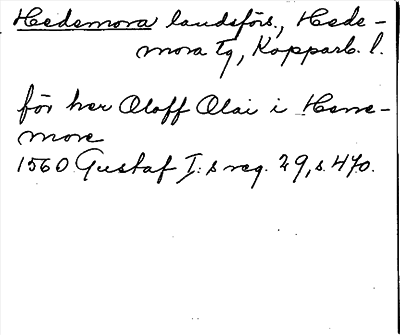 Hedemora landsförs., Hede-
mora tg, Kopparb. l.
för her Oloff Olai i Heme-
more
1560 Gustaf I:s reg. 29, s. 470.